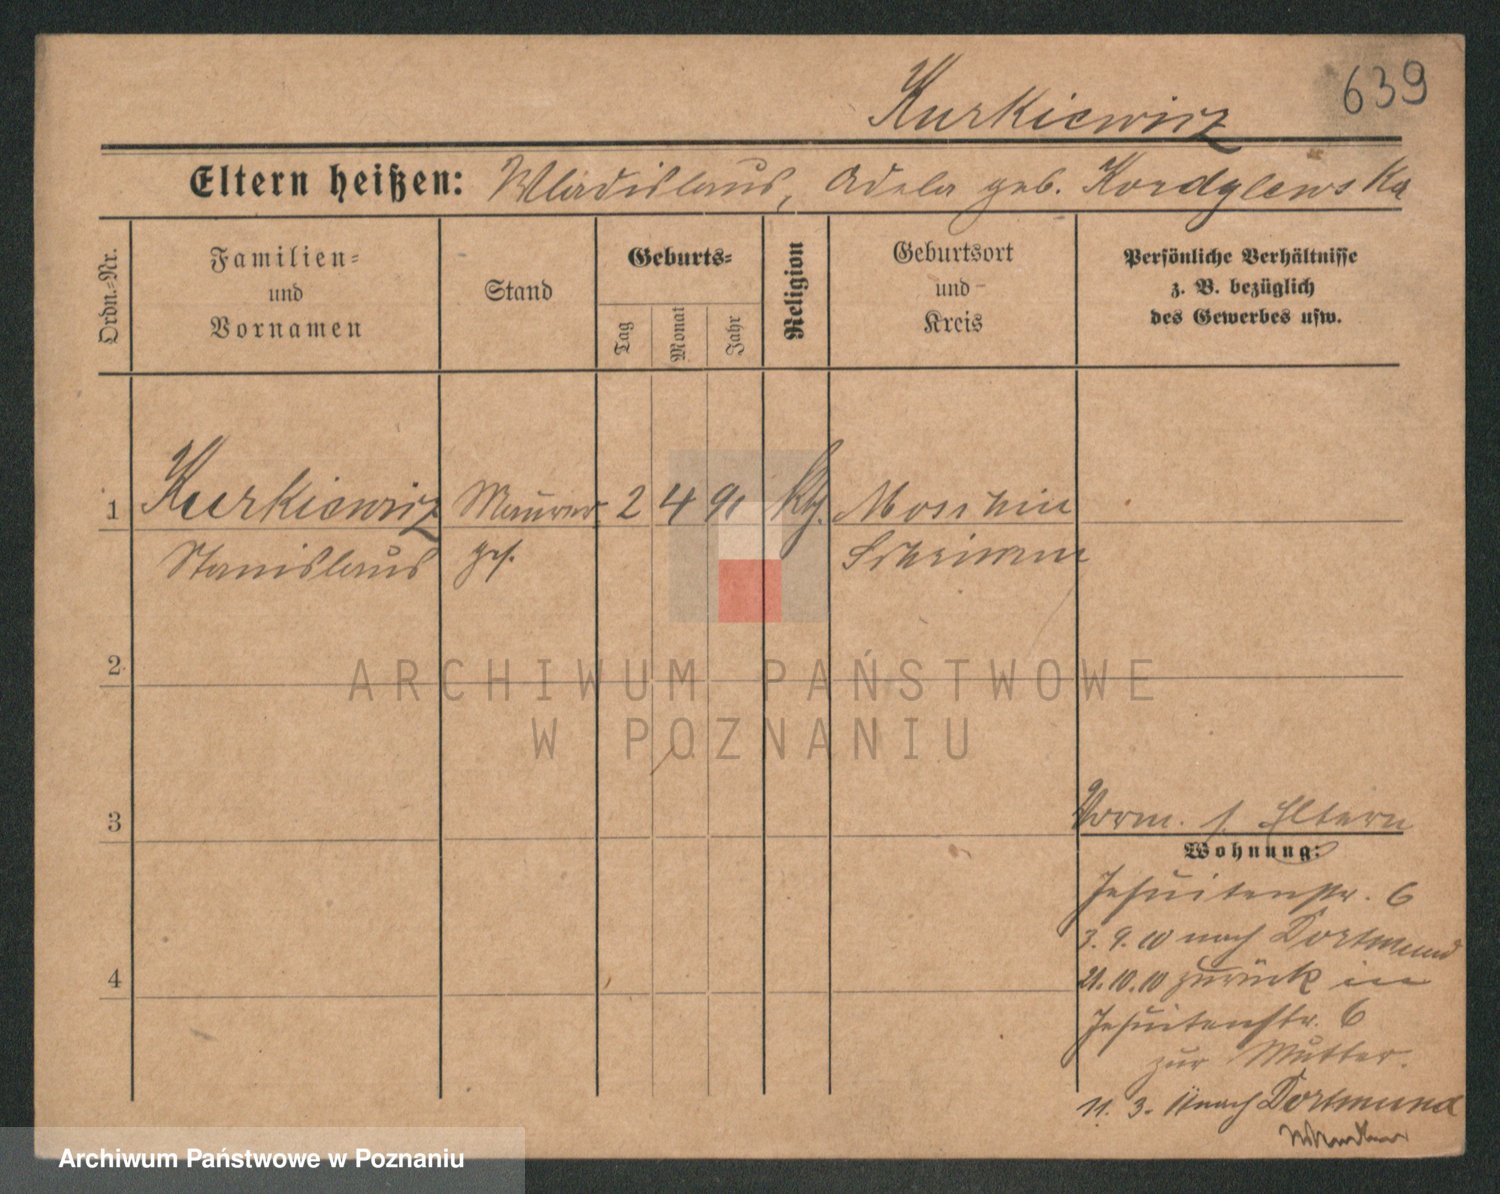 639
Kurkiewicz
Eltern heißen: Wladislaus, Adela geb. Kordylewska
Ordn.-Nr.
Familien- und Vornamen
Stand
Geburts-
Tag
Monat
Jahr
Religion
Geburtsort und Kreis
Persönliche Verhältnisse
z. B. bezüglich
des Gewerbes usw.
1 Kurkiewicz Maurer 2 4 91 kth. Moschin
Stanislaus ges. Schrimm
2
3
4
Vorm. s. Eltern
Wohnung:
Jesuitenstr. 6
3. 9. 10 nach Dortmund
21. 10. 10 zurück in
Jesuitenstr. 6
zur Mutter.
11. 3. 11 nach Dortmund
ARCHIWUM PAŃSTWOWE
W POZNANIU
Archiwum Państwowe w Poznaniu